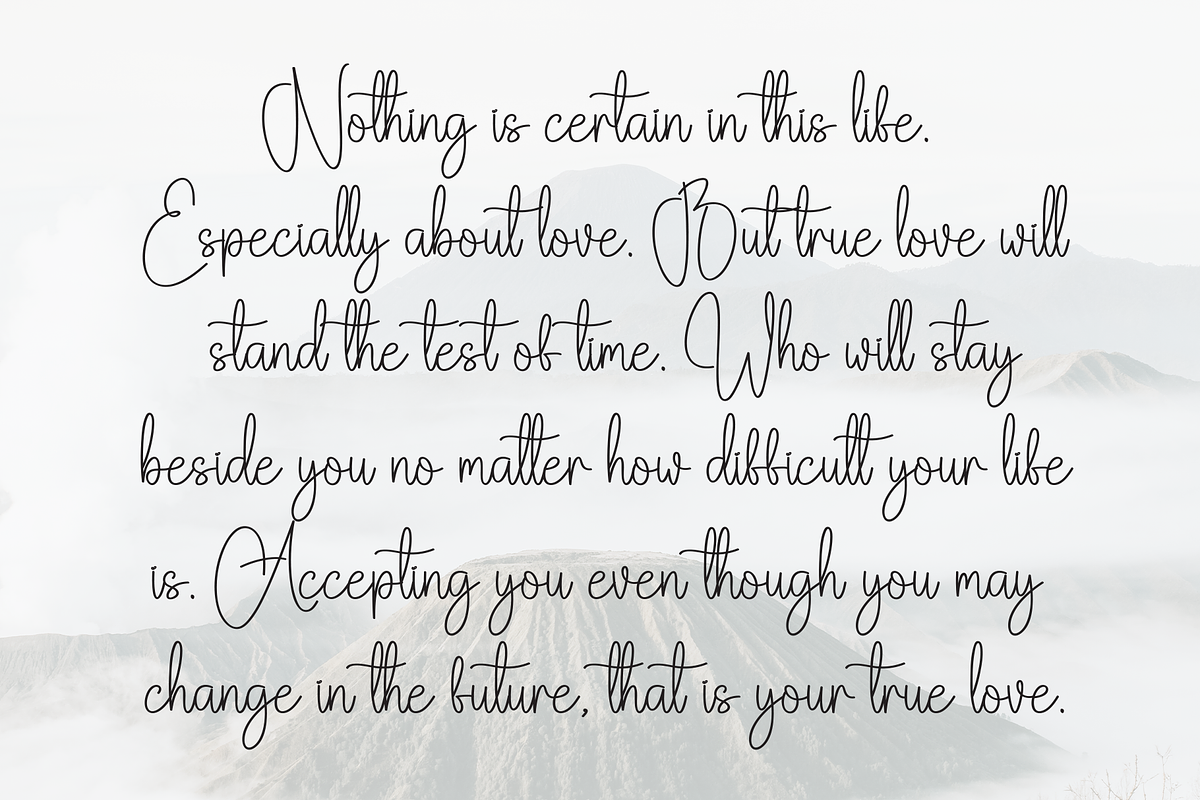 Nothing is certain in this life.
Especially about love. But true love will
stand the test of time. Who will stay
beside you no matter how difficult your life
is. Accepting you even though you may
change in the future, that is your true love.